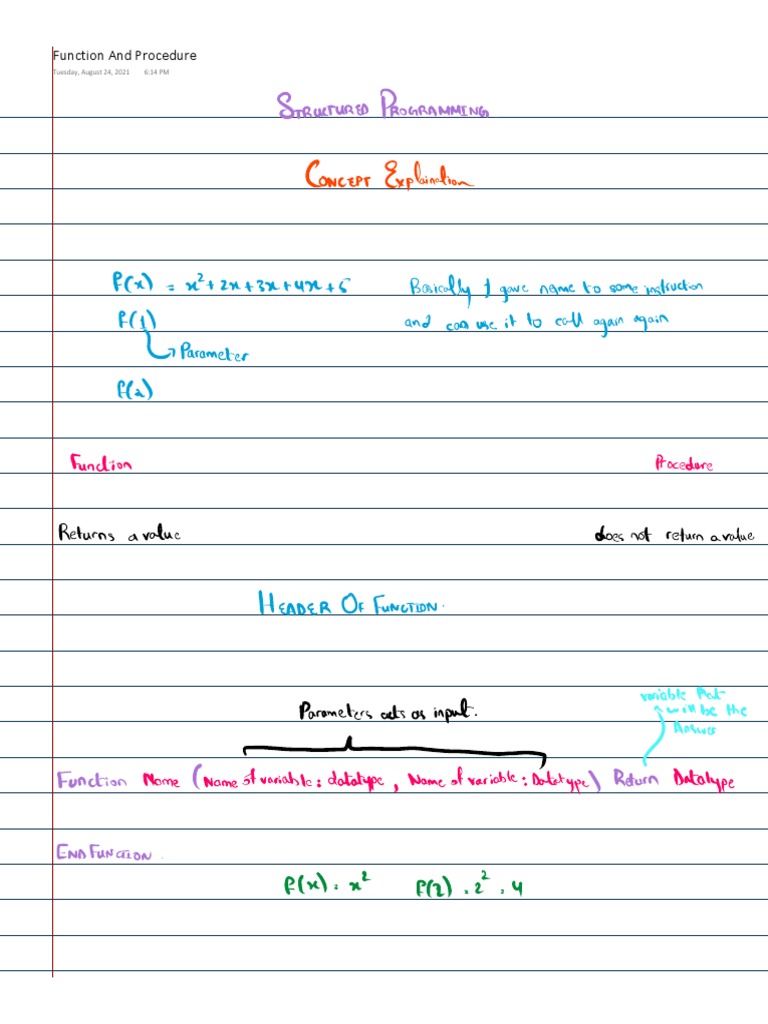 Function And Procedure
Tuesday, August 24, 2021 6:14 PM
STRUCTURED PROGRAMMING
CONCEPT Explaination
f(x) = x² + 2x + 3x + 4x + 5 Basically I gave name to some instruction
f(1) and can use it to call again again
Parameter
f(2)
Function Procedure
Returns a value does not return a value
HEADER OF FUNCTION.
variable that
Parameters acts as input. will be the
Answer
Function Name (Name of variable : datatype , Name of variable : Datatype) Return Datatype
END FUNCTION.
f(x) = x² f(2) = 2² = 4